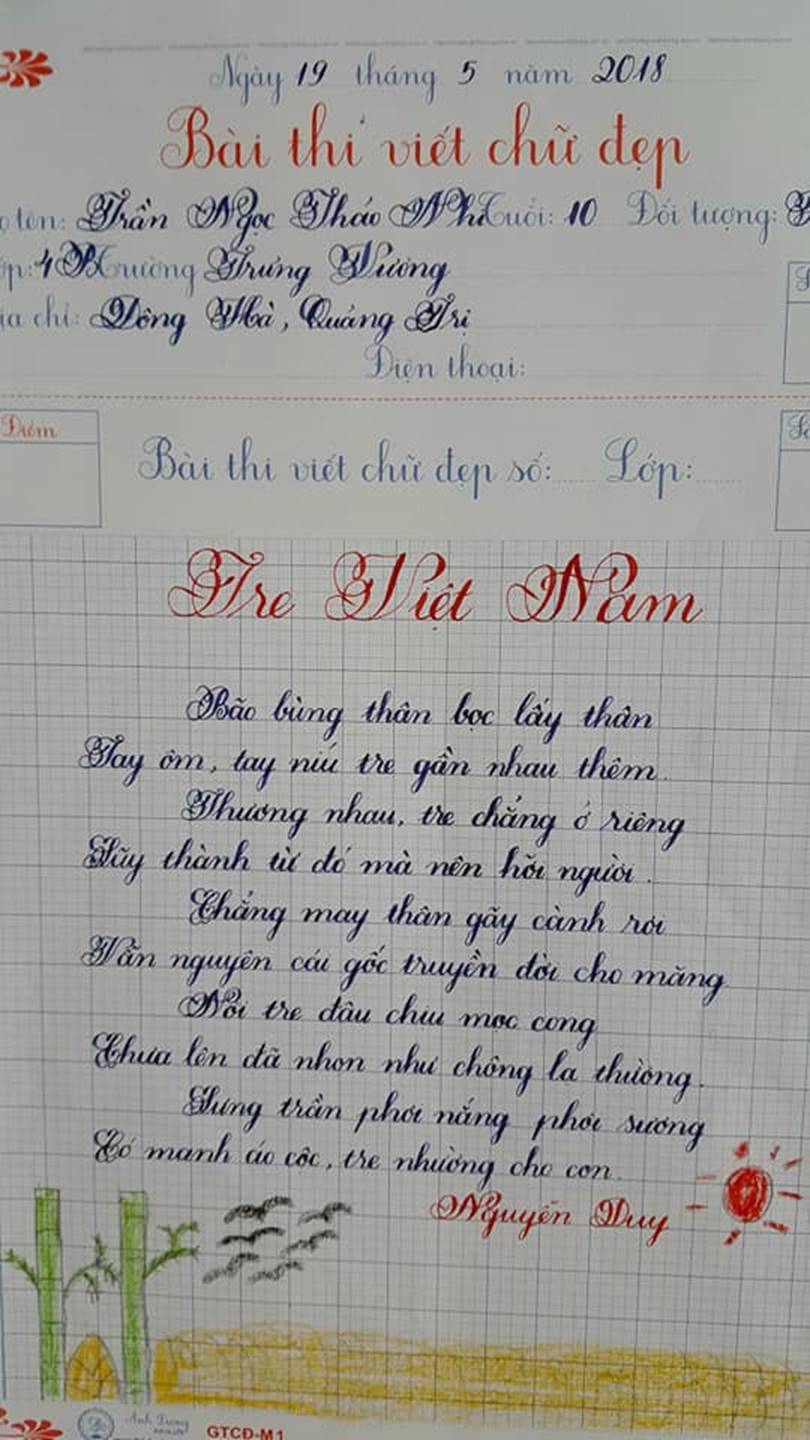 Ngày 19 tháng 5 năm 2018
Bài thi viết chữ đẹp
tên: Trần Ngọc Thảo Nhi Tuổi: 10 Đối tượng:
4B Trường Trưng Vương
chỉ: Đông Hà, Quảng Trị
Điện thoại:
Điểm
Bài thi viết chữ đẹp số: Lớp:
Tre Việt Nam
Bão bùng thân bọc lấy thân
Tay ôm, tay níu tre gần nhau thêm.
Thương nhau, tre chẳng ở riêng
Lũy thành từ đó mà nên hỡi người.
Chẳng may thân gãy cành rơi
Vẫn nguyên cái gốc truyền đời cho măng
Nòi tre đâu chịu mọc cong
Chưa lên đã nhọn như chông lạ thường.
Lưng trần phơi nắng phơi sương
Có manh áo cộc, tre nhường cho con.
Nguyễn Duy
Ánh Dương
GTCĐ-M1